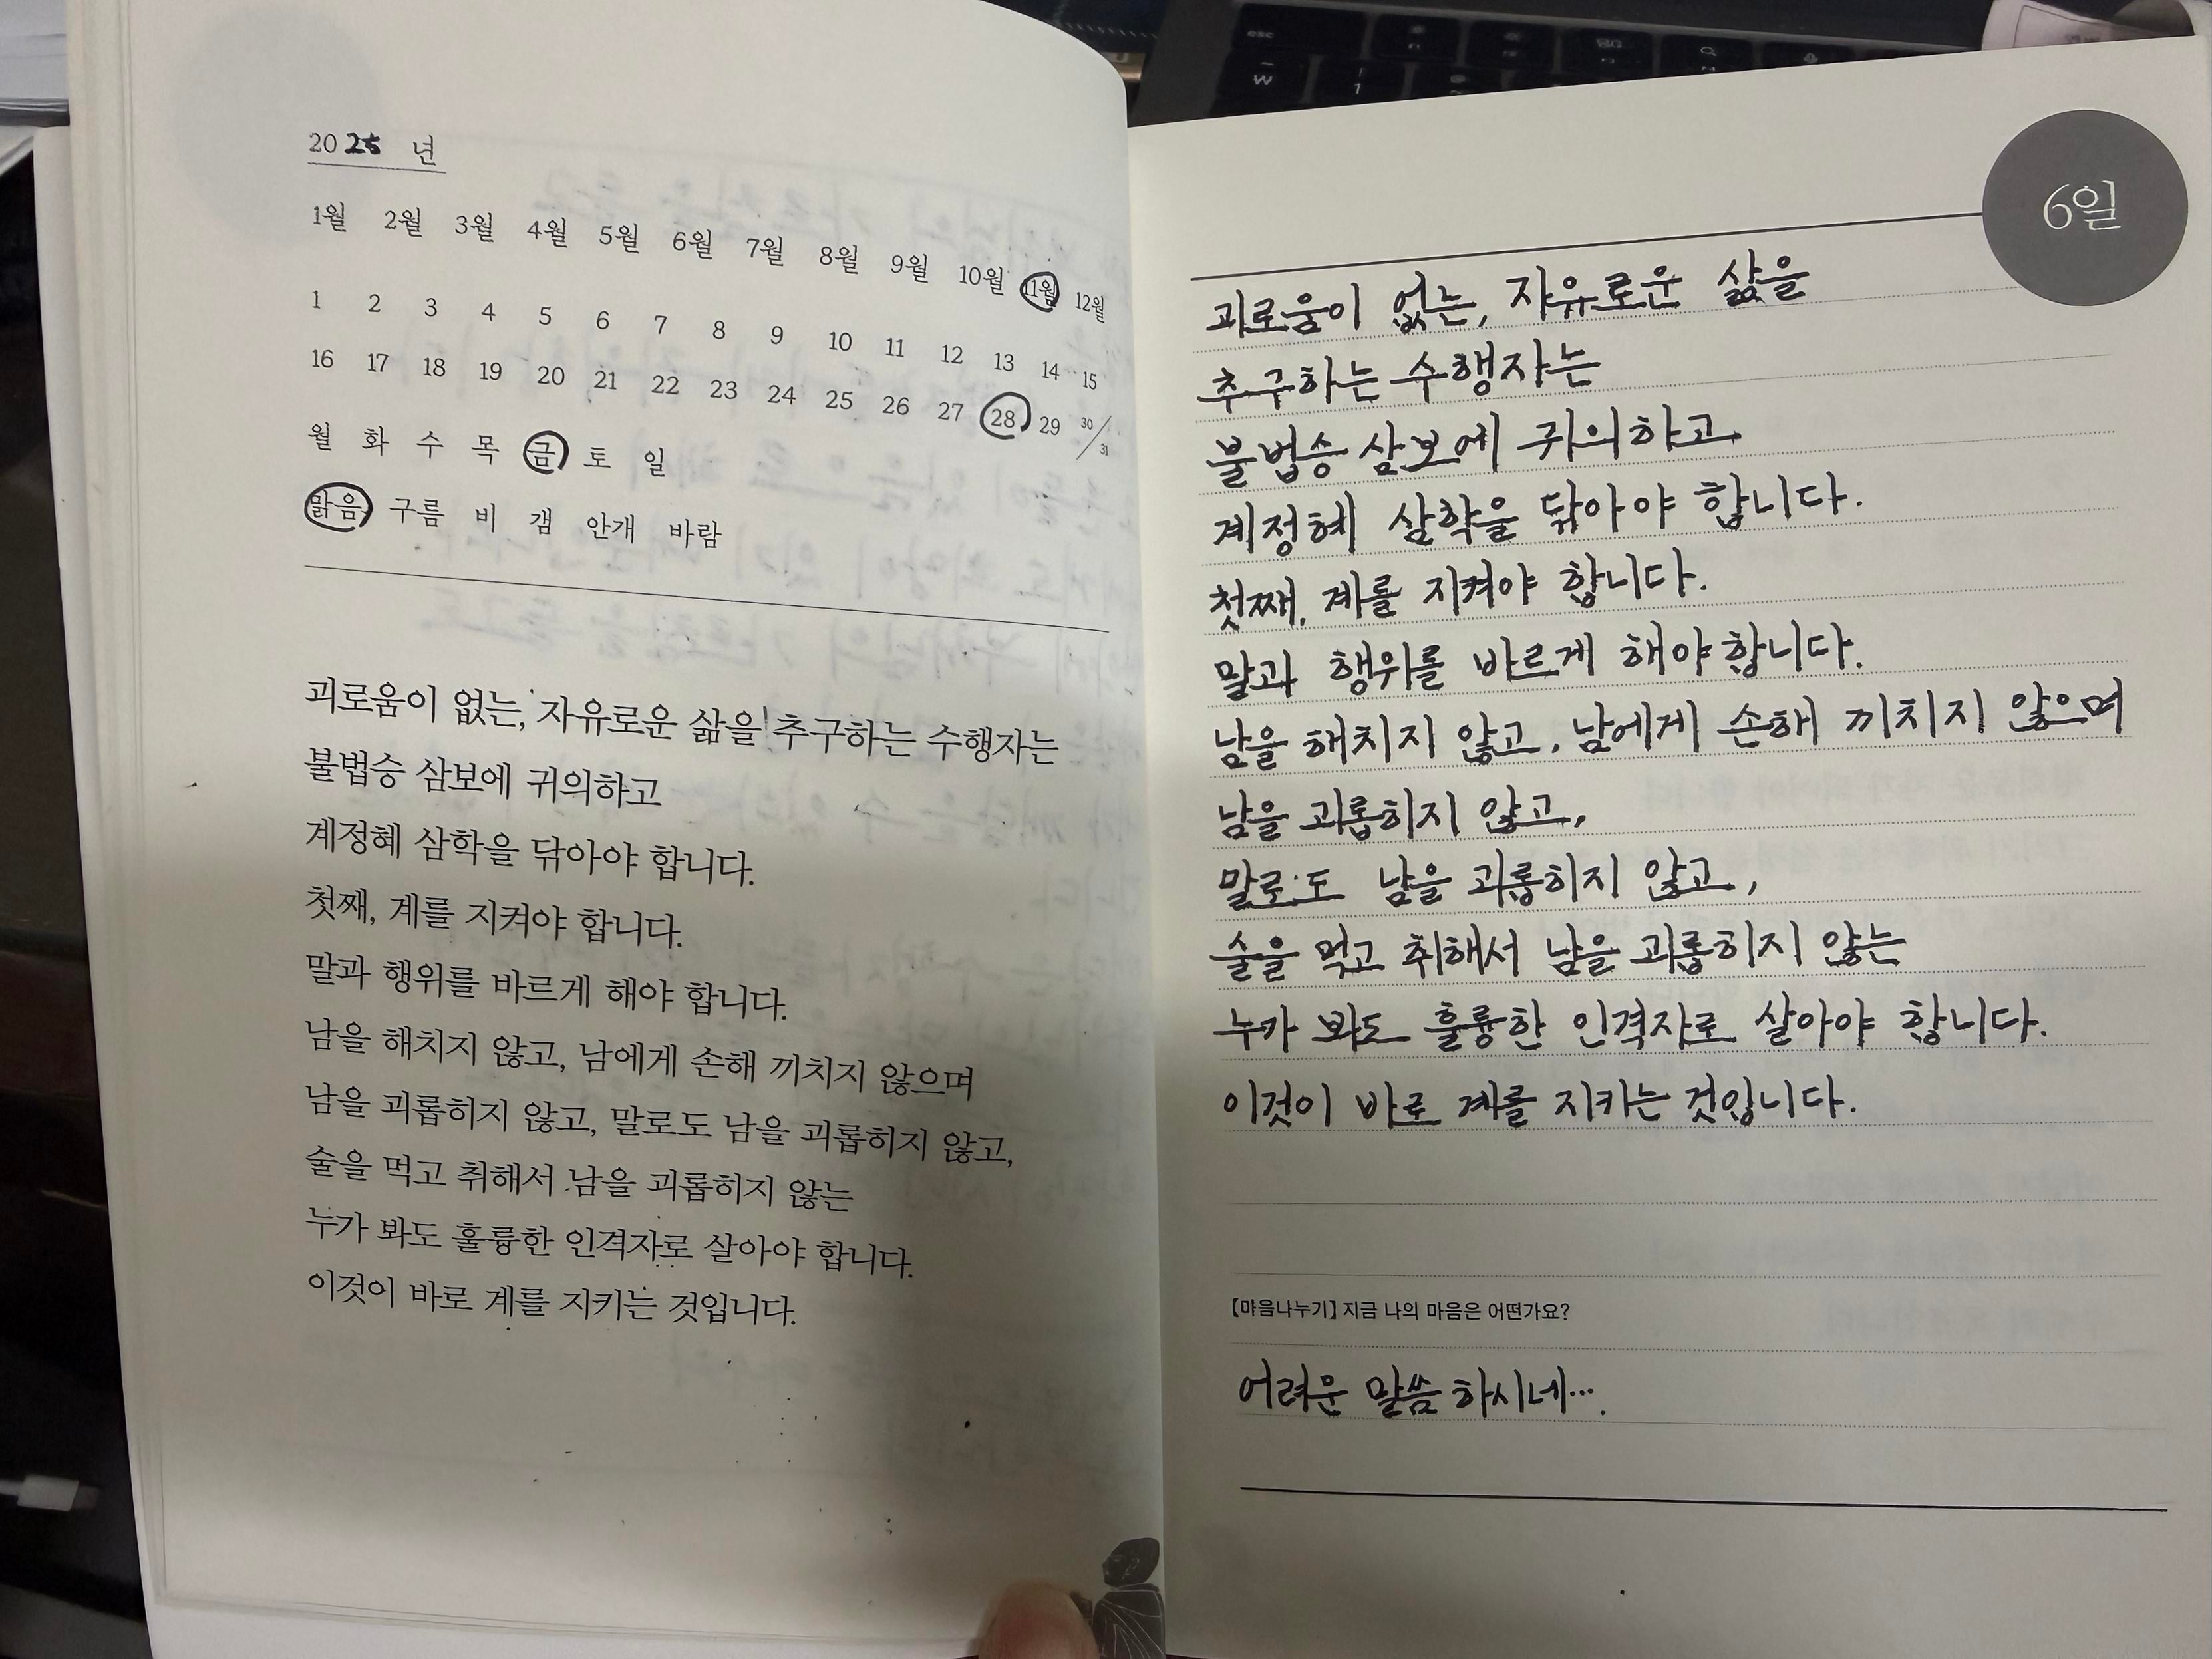 2025 년
1월 2월 3월 4월 5월 6월 7월 8월 9월 10월 11월 12월
1 2 3 4 5 6 7 8 9 10 11 12 13 14 15
16 17 18 19 20 21 22 23 24 25 26 27 28 29 30/31
월 화 수 목 금 토 일
맑음 구름 비 갬 안개 바람
괴로움이 없는, 자유로운 삶을 추구하는 수행자는
불법승 삼보에 귀의하고
계정혜 삼학을 닦아야 합니다.
첫째, 계를 지켜야 합니다.
말과 행위를 바르게 해야 합니다.
남을 해치지 않고, 남에게 손해 끼치지 않으며
남을 괴롭히지 않고, 말로도 남을 괴롭히지 않고,
술을 먹고 취해서 남을 괴롭히지 않는
누가 봐도 훌륭한 인격자로 살아야 합니다.
이것이 바로 계를 지키는 것입니다.
6일
괴로움이 없는, 자유로운 삶을
추구하는 수행자는
불법승 삼보에 귀의하고
계정혜 삼학을 닦아야 합니다.
첫째, 계를 지켜야 합니다.
말과 행위를 바르게 해야 합니다.
남을 해치지 않고, 남에게 손해 끼치지 않으며
남을 괴롭히지 않고,
말로도 남을 괴롭히지 않고,
술을 먹고 취해서 남을 괴롭히지 않는
누가 봐도 훌륭한 인격자로 살아야 합니다.
이것이 바로 계를 지키는 것입니다.
【마음나누기】 지금 나의 마음은 어떤가요?
어려운 말씀 하시네….
esc